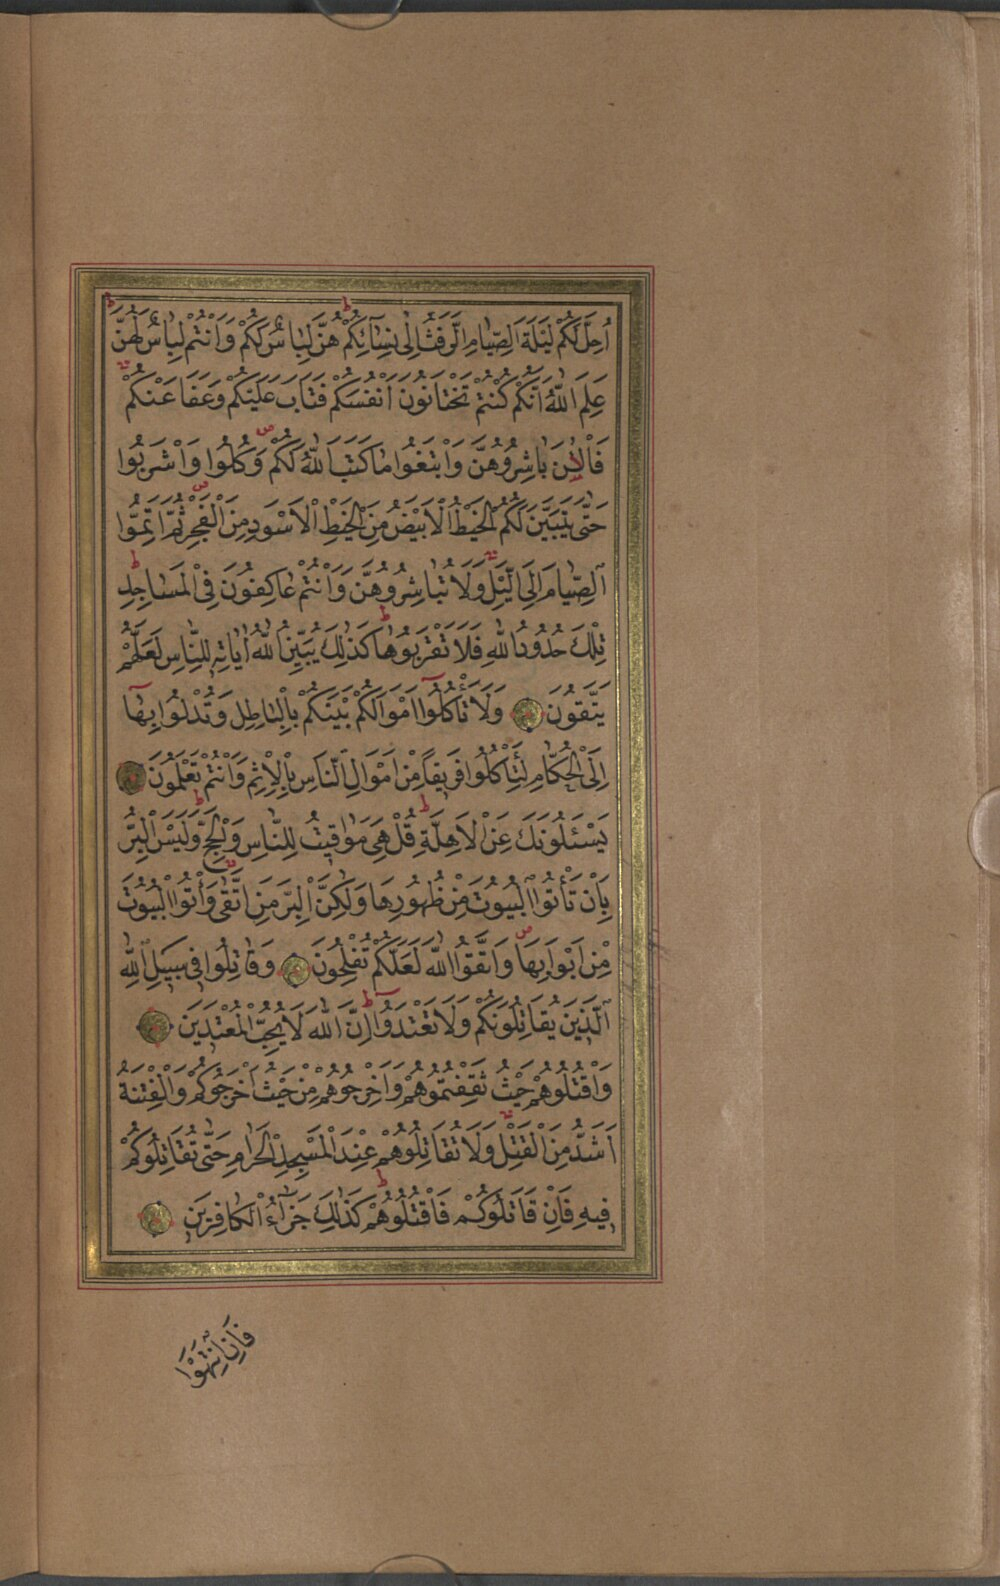 اُحِلَّ لَكُمْ لَيْلَةَ الصِّيَامِ الرَّفَثُ اِلٰى نِسَآئِكُمْ هُنَّ لِبَاسٌ لَكُمْ وَاَنْتُمْ لِبَاسٌ لَهُنَّ
عَلِمَ اللّٰهُ اَنَّكُمْ كُنْتُمْ تَخْتَانُونَ اَنْفُسَكُمْ فَتَابَ عَلَيْكُمْ وَعَفَا عَنْكُمْ
فَالْاٰنَ بَاشِرُوهُنَّ وَابْتَغُوا مَا كَتَبَ اللّٰهُ لَكُمْ وَكُلُوا وَاشْرَبُوا
حَتّٰى يَتَبَيَّنَ لَكُمُ الْخَيْطُ الْاَبْيَضُ مِنَ الْخَيْطِ الْاَسْوَدِ مِنَ الْفَجْرِ ثُمَّ اَتِمُّوا
الصِّيَامَ اِلَى الَّيْلِ وَلَا تُبَاشِرُوهُنَّ وَاَنْتُمْ عَاكِفُونَ فِى الْمَسَاجِدِ
تِلْكَ حُدُودُ اللّٰهِ فَلَا تَقْرَبُوهَا كَذٰلِكَ يُبَيِّنُ اللّٰهُ اٰيَاتِهِ لِلنَّاسِ لَعَلَّهُمْ
يَتَّقُونَ وَلَا تَأْكُلُوا اَمْوَالَكُمْ بَيْنَكُمْ بِالْبَاطِلِ وَتُدْلُوا بِهَا
اِلَى الْحُكَّامِ لِتَأْكُلُوا فَرِيقًا مِنْ اَمْوَالِ النَّاسِ بِالْاِثْمِ وَاَنْتُمْ تَعْلَمُونَ
يَسْئَلُونَكَ عَنِ الْاَهِلَّةِ قُلْ هِىَ مَوَاقِيتُ لِلنَّاسِ وَالْحَجِّ وَلَيْسَ الْبِرُّ
بِاَنْ تَأْتُوا الْبُيُوتَ مِنْ ظُهُورِهَا وَلٰكِنَّ الْبِرَّ مَنِ اتَّقٰى وَأْتُوا الْبُيُوتَ
مِنْ اَبْوَابِهَا وَاتَّقُوا اللّٰهَ لَعَلَّكُمْ تُفْلِحُونَ وَقَاتِلُوا فِى سَبِيلِ اللّٰهِ
الَّذِينَ يُقَاتِلُونَكُمْ وَلَا تَعْتَدُوا اِنَّ اللّٰهَ لَا يُحِبُّ الْمُعْتَدِينَ
وَاقْتُلُوهُمْ حَيْثُ ثَقِفْتُمُوهُمْ وَاَخْرِجُوهُمْ مِنْ حَيْثُ اَخْرَجُوكُمْ وَالْفِتْنَةُ
اَشَدُّ مِنَ الْقَتْلِ وَلَا تُقَاتِلُوهُمْ عِنْدَ الْمَسْجِدِ الْحَرَامِ حَتّٰى يُقَاتِلُوكُمْ
فِيهِ فَاِنْ قَاتَلُوكُمْ فَاقْتُلُوهُمْ كَذٰلِكَ جَزَآءُ الْكَافِرِينَ
فَاِنِ انْتَهَوْا